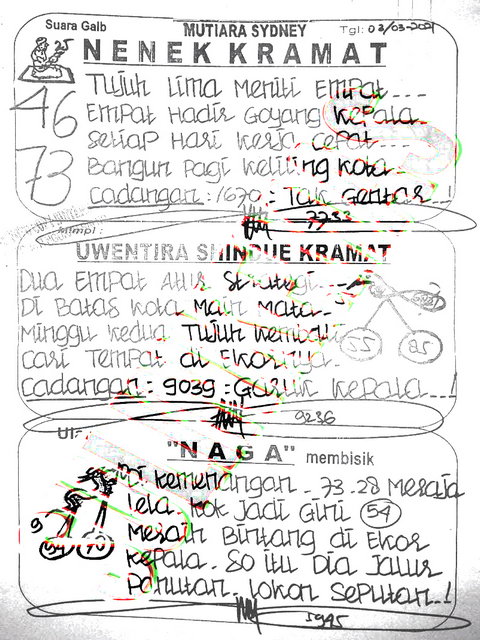 Suara Gaib MUTIARA SYDNEY Tgl: 03/03-2021
NENEK KRAMAT
46
73
Tujuh Lima Meniti Empat
Empat Hadir Goyang Kepala
Setiap Hari Kerja Cepat
Bangun Pagi Keliling Kota
Cadangan: 1670: Tak Gentar !
7733
Mimpi:
UWENTIRA SHINDUE KRAMAT
Dua Empat Atur Strategi
Di Batas Kota Main Mata
Minggu Kedua Tujuh Kembali
Cari Tempat di Ekornya
Cadangan: 9039: Garuk Kepala !
55 85
9236
"NAGA" membisik
Di Kemenangan 73.28 Meraja
lela. Kok Jadi Gini 54
Meraih Bintang di Ekor
Kepala. 80 itu Dia Jalur
Panutan. Jokon Seputan !
9
5945